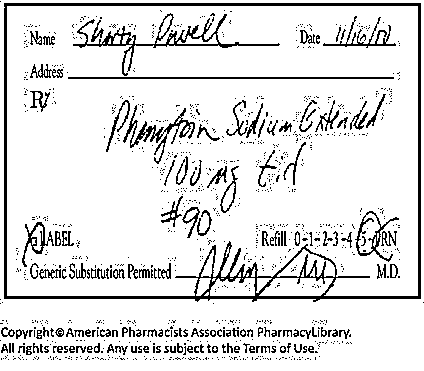 Name Shorty Powell Date 11/16/10
Address
Rx
Phenytoin Sodium Extended
100 mg tid
#90
LABEL Refill 0-1-2-3-4-5-PRN
Generic Substitution Permitted M.D.
Copyright©American Pharmacists Association PharmacyLibrary.
All rights reserved. Any use is subject to the Terms of Use.